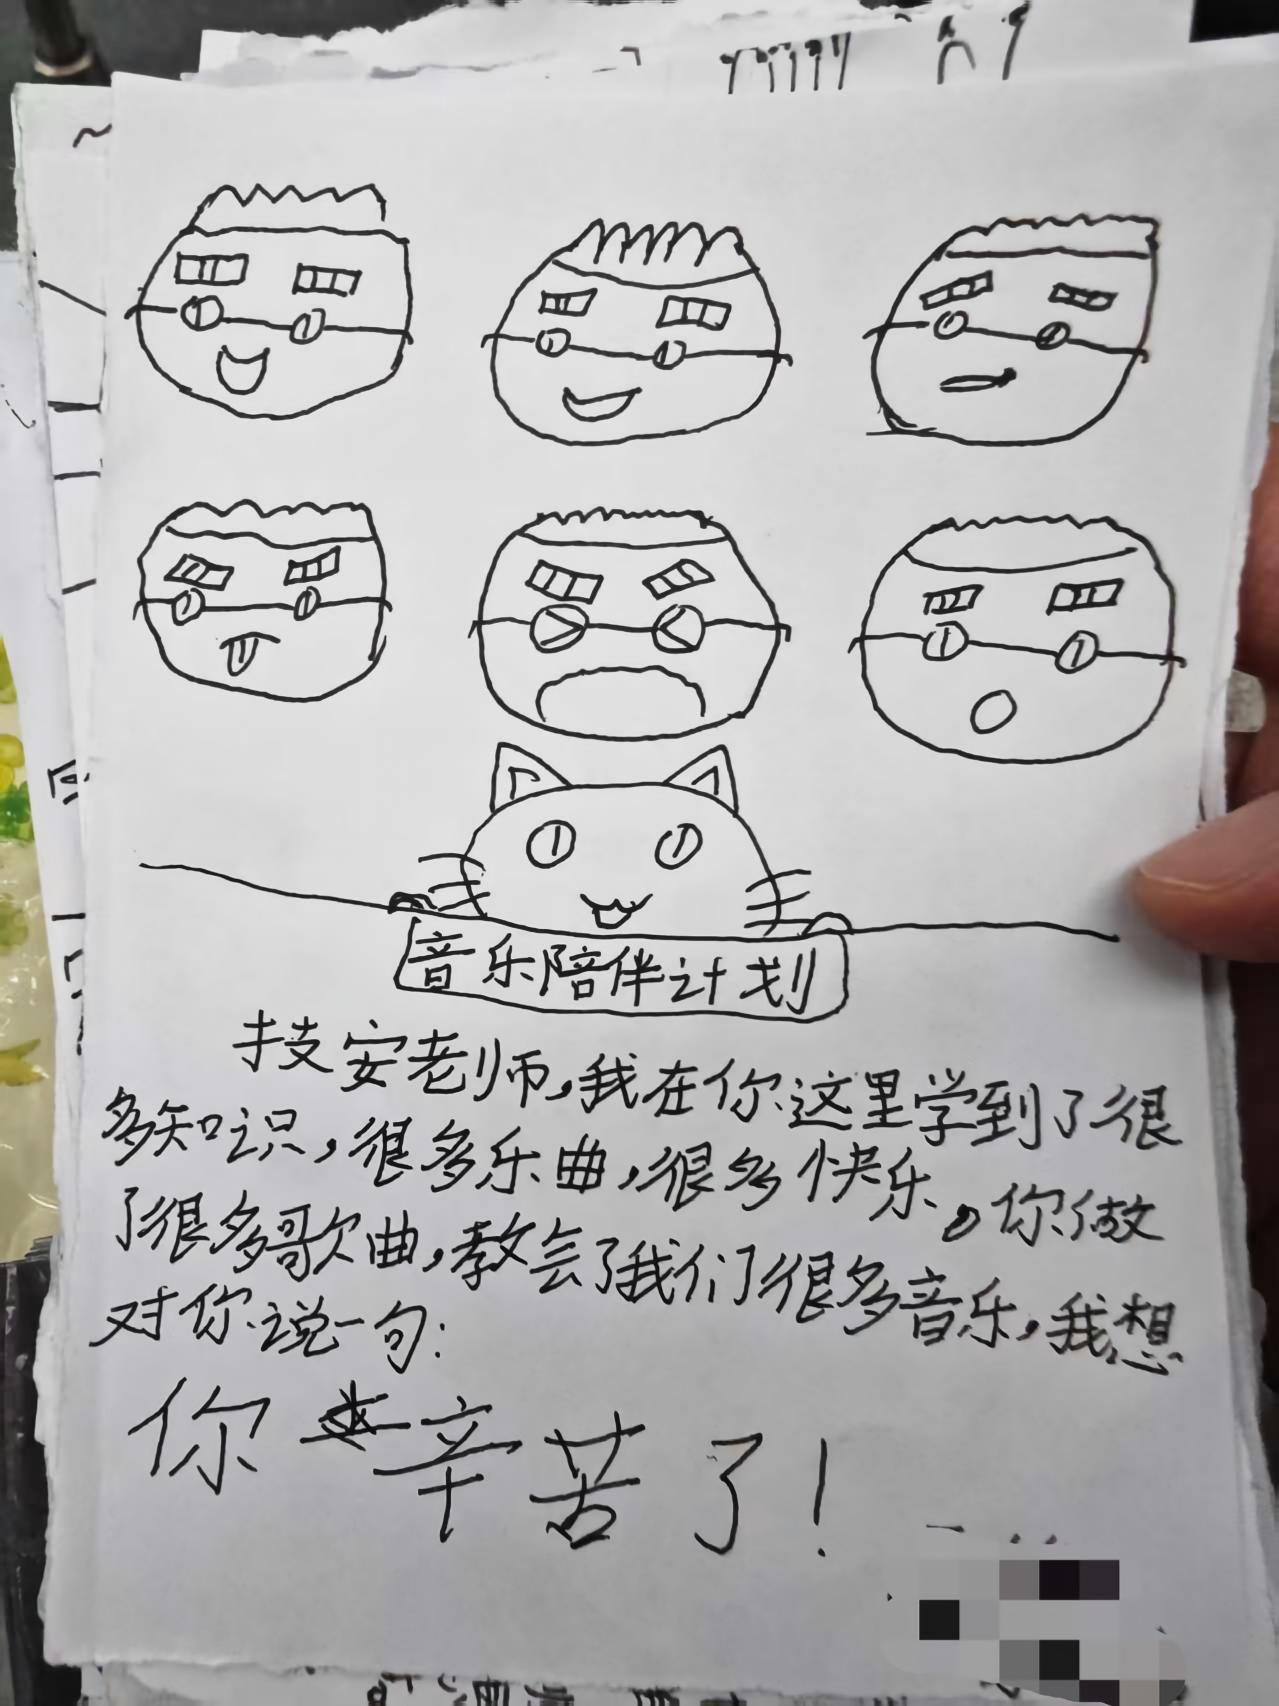 音乐陪伴计划
技安老师,我在你这里学到了很
多知识,很多乐曲,很多快乐。你做
了很多歌曲,教会了我们很多音乐,我想
对你说一句:
你辛苦了!